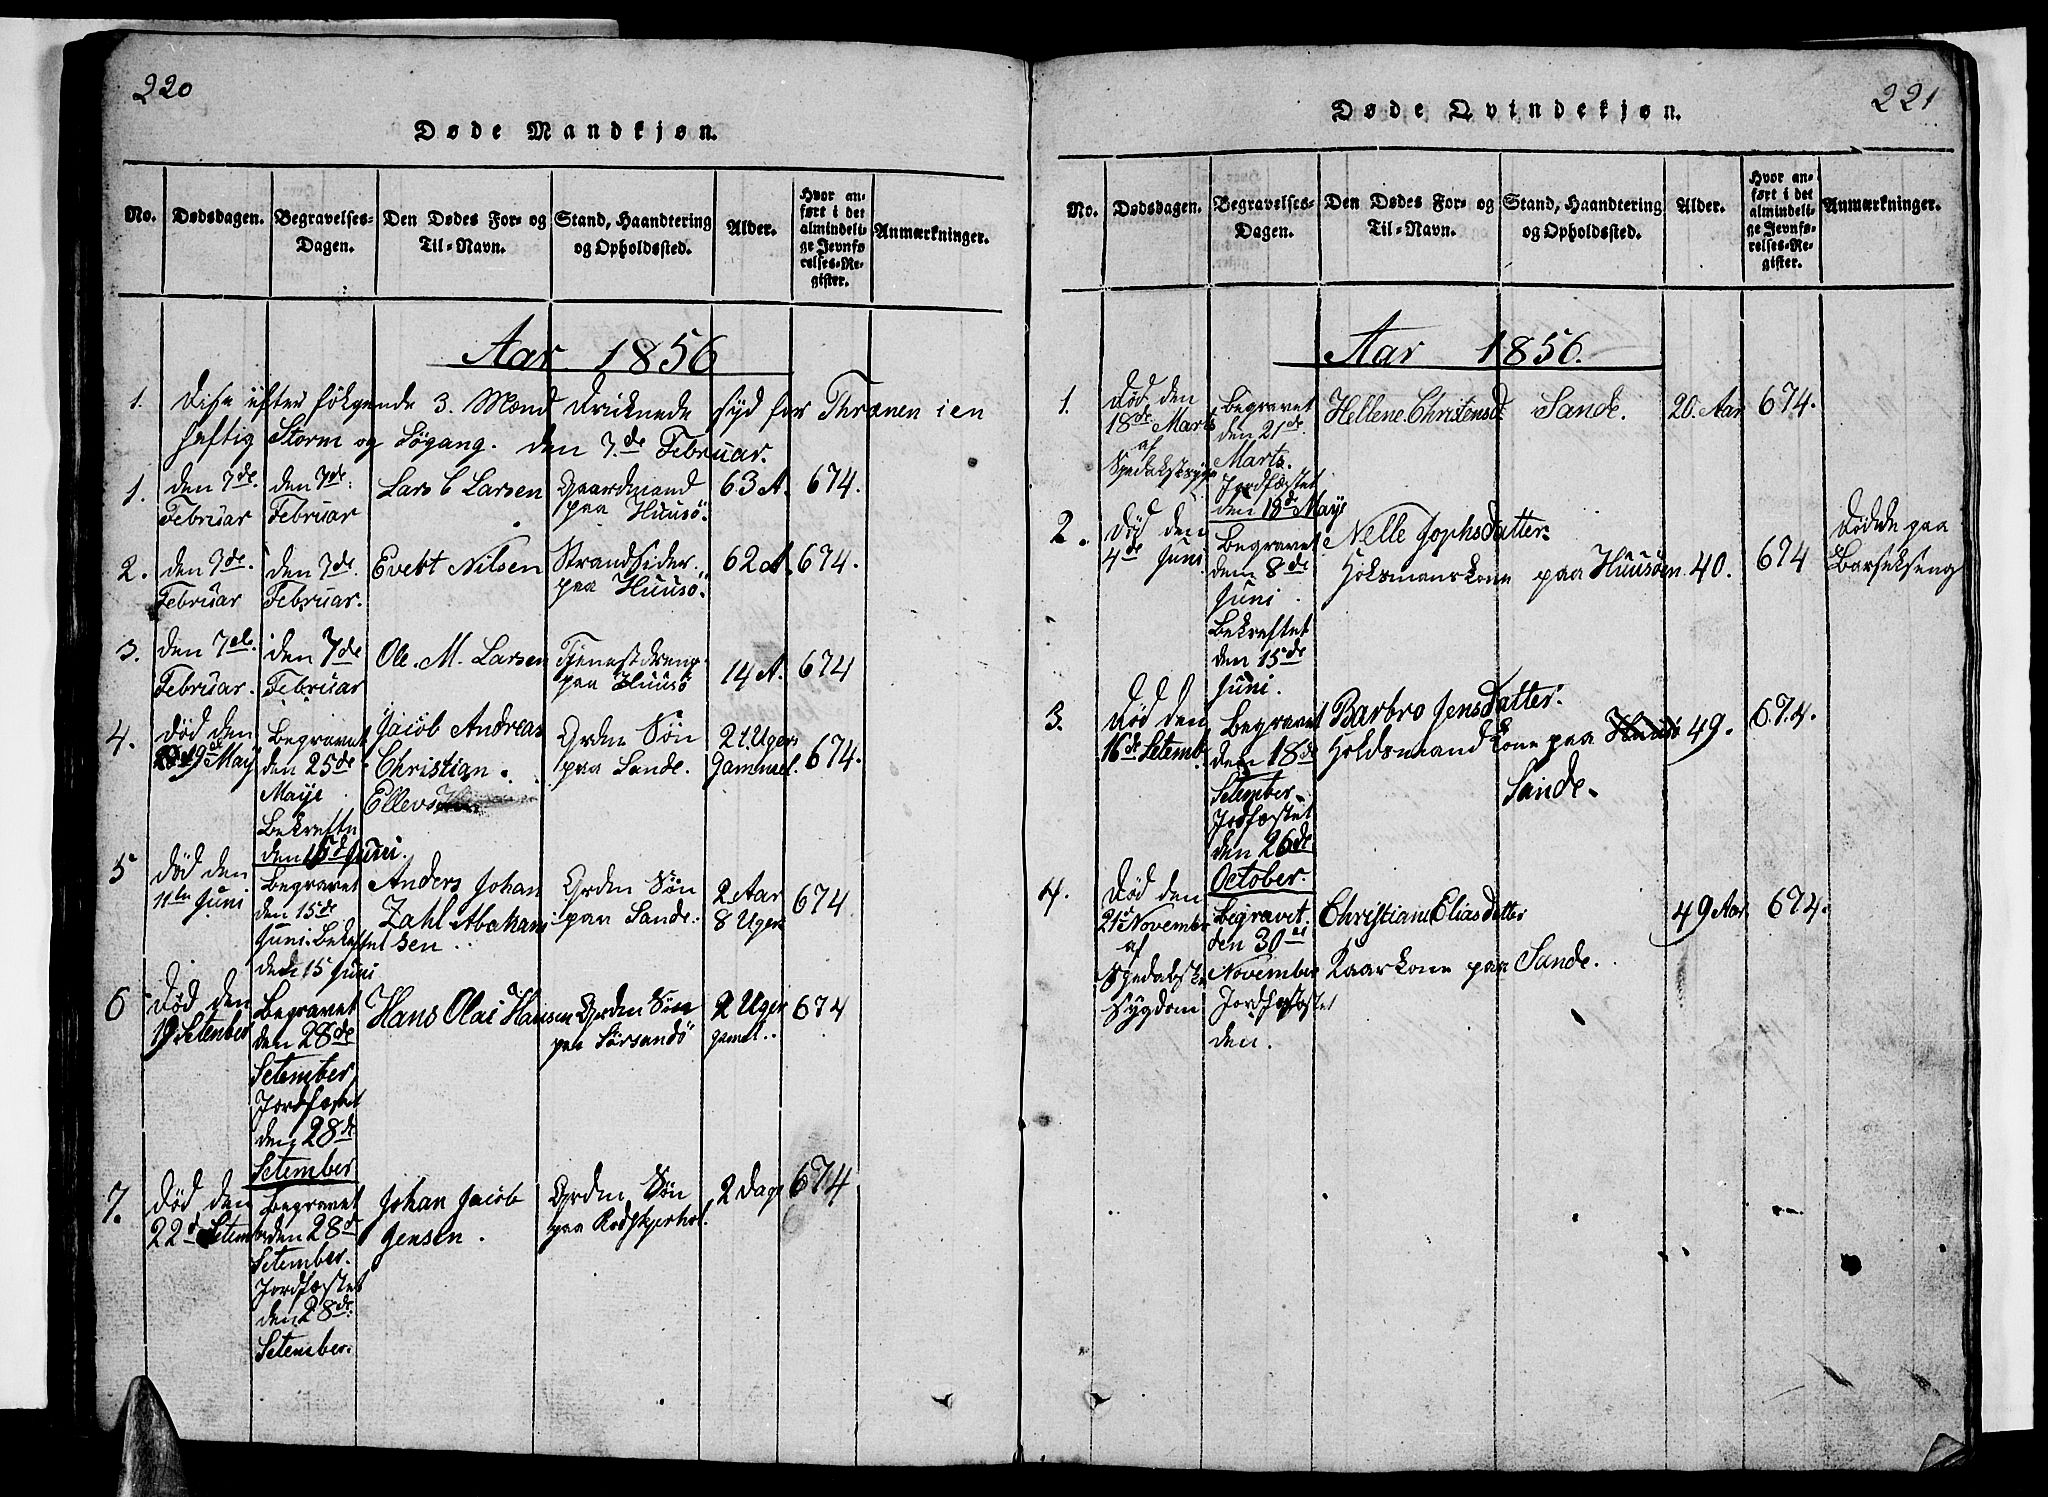 220
Døde Mandkjøn.
No. Dødsdagen. Begravelses-Dagen. Den Dødes For- og Til-Navn. Stand, Haandtering og Opholdssted. Alder. Hvor anført i det almindelige Jevnførelses-Register. Anmærkninger.
Aar 1856
1. Disse efter følgende 3. Mænd Dricknede syd for Thrænen i en
heftig Storm og Søgang. den 7de Februar.
1. den 7de. den 7de. Lars C Larsen Gaardmand 63 A. 674.
Februar Februar paa Huusö.
2. den 7de. den 7de. Evert Nilsen Strandsider 62 A. 674.
Februar Februar. paa Huusö.
3. den 7de. den 7de Ole. M. Larsen Tjenestdreng 14 A. 674
Februar. Februar paa Huusö
4. Død den Begravet Jacob Andreas Grden Søn 21 Uger 674.
19de May den 25de Christian. paa Sande. Gammel.
Maye Ellevsen
Bekreftn
den 15de Juni.
5 Død den Begravet Anders Johan Grden Søn 2 Aar 674
11te Juni den 15de Zahl Abrahamsen paa Sande. 8 Uger
Juni. Bekreftet
den 15 Juni
6 Død den Begravet Hans Olai Hansen Grden Søn 2 Uger 674
19 Setember den 28de paa Sørsandö gamel.
Setember,
Jordfæstet
den 28de
Setember
7. Død den Begravet Johan Jacob Grden Søn 2 Dage 674
22d Setemb den 28de Jensen. paa Rødskjerhol.
Setember.
Jordfæstet
den 28de.
Setember.
221
Døde Qvindekjøn.
No. Dødsdagen. Begravelses-Dagen. Den Dødes For- og Til-Navn. Stand, Haandtering og Opholdssted. Alder. Hvor anført i det almindelige Jevnførelses-Register. Anmærkninger.
Aar 1856.
1. Død, den Begravet Hellene. Christensd. Sande. 20. Aar 674.
18de Marts den 21de.
af Marts.
Spedalsksyge Jordfæstet
den 18de Maye
2. Død den Begravet Nelle Jophsdatter. 40. 674 Dødede paa
4de Juni den 8de Holsmanskone paa Huusöen Barselseng
Juni.
Bekreftet
den 15de
Juni.
3. Død den Begravet Barbro Jensdatter. 49. 674.
16de Setemb. den 18de Holdsmandkone paa Huusö
Setember Sande.
Jodfæstet
den 26de
October.
4. Død den Begravet. Christiane Eliasdatter 49 Aar 674.
21de November den 30de
af November Kaarkone paa Sande.
Spedalske Jordfæstet
sygdom den.